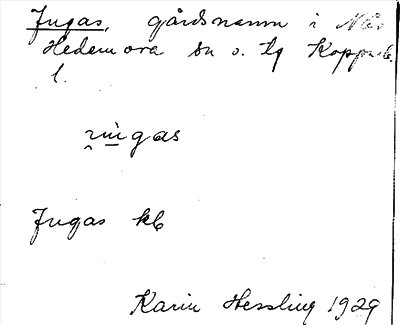 Jugas, gårdsnamn i
Hedemora sn o. tg Kopparb.
l.
Jugas kb
Karin Hessling 1929